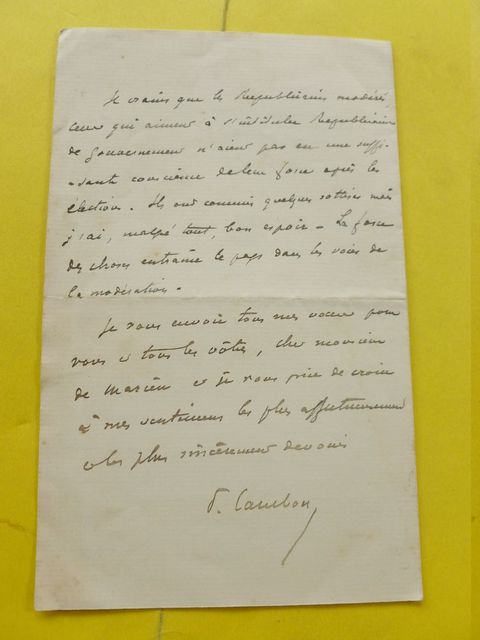 Je crains que les Républicains modérés,
ceux qui aiment à s'intituler Républicains
de Gouvernement n'aient pas eu une suffi-
-sante conscience de leur force après les
élections. Ils ont commis quelques sottises mais
j'ai, malgré tout, bon espoir. La force
des choses entraîne le pays dans les voies de
la modération.
Je vous envoie tous mes vœux pour
vous et tous les vôtres, cher monsieur
de et je vous prie de croire
à mes sentimens les plus affectueusement
et les plus sincèrement dévoués
P. Cambon